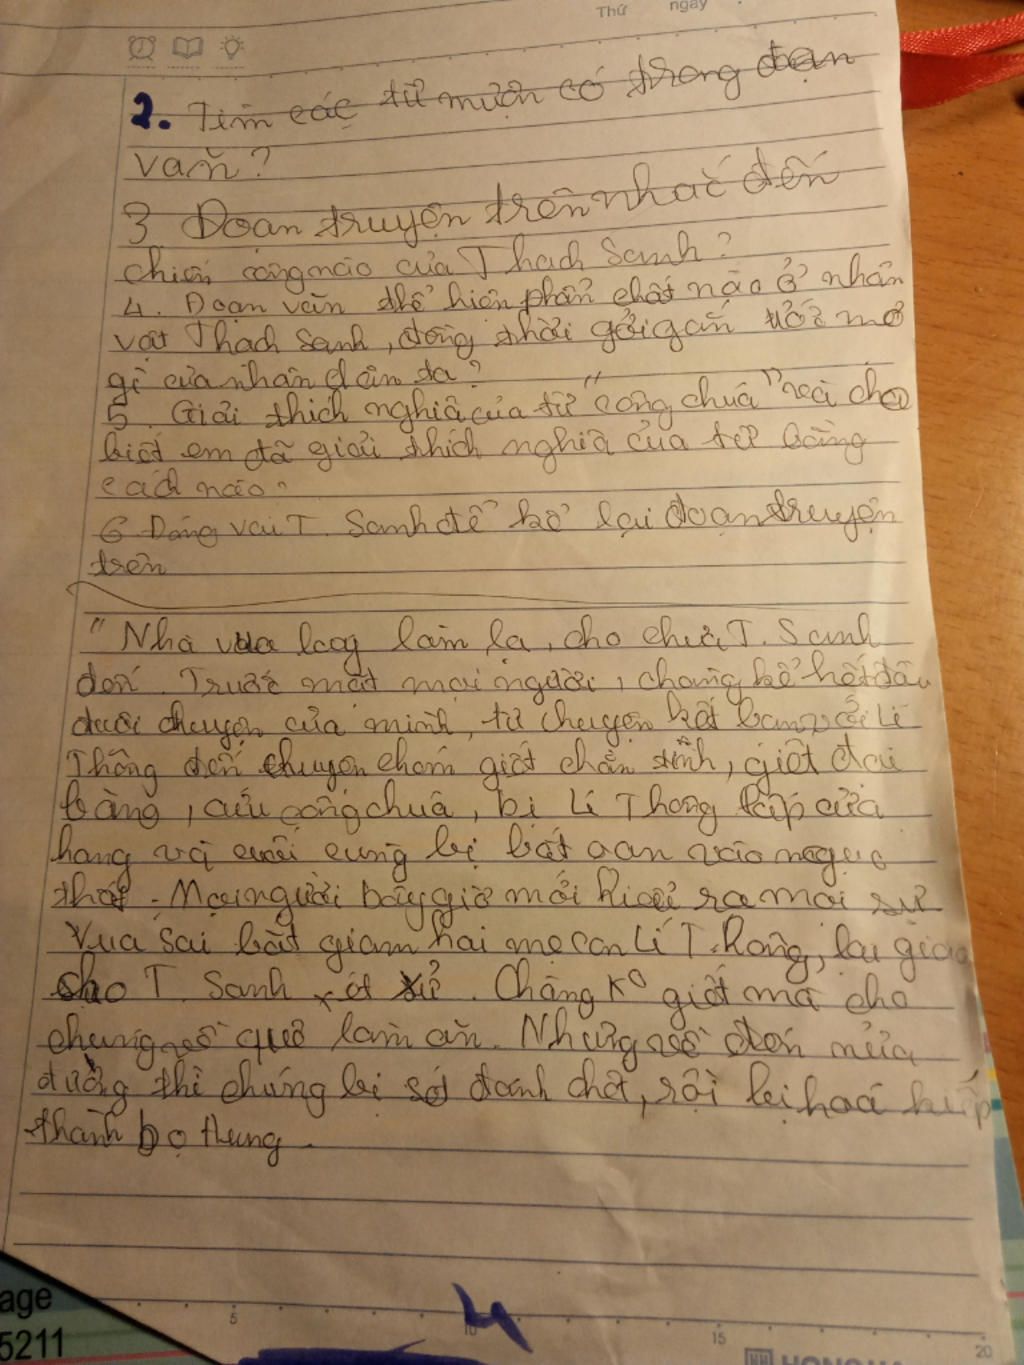 Thứ ngày
2. Tìm các từ mượn có trong đoạn
văn?
3 Đoạn truyện trên nhắc đến
chiến công nào của Thạch Sanh?
4. Đoạn văn thể hiện phẩm chất nào ở nhân
vật Thạch Sanh, đồng thời gởi gắn ước mơ
gì của nhân dân ta?
5. Giải thích nghĩa của từ "công chúa" và cho
biết em đã giải thích nghĩa của từ bằng
cách nào?
6 Đóng vai T. Sanh để kể lại đoạn truyện
trên
"Nhà vua lấy làm lạ, cho chưa T. Sanh
đến. Trước mặt mọi người, chàng kể hết đầu
đuôi chuyện của mình, từ chuyện kết bạn với Lí
Thông đến chuyện chém giết chằn tinh, giết đại
bàng, cứu công chúa, bị Lí Thông lấp cửa
hang và cuối cùng bị bắt oan vào ngục
thất. Mọi người bấy giờ mới hiểu ra mọi sự
Vua sai bắt giam hai mẹ con Lí Thông, lại giao
cho T. Sanh xét xử. Chàng K° giết mà cho
chúng về quê làm ăn. Nhưng về đến nửa
đường thì chúng bị sét đánh chết, rồi bị hoá kiếp
thành bọ hung.
4
age
5211
5 10 15 20